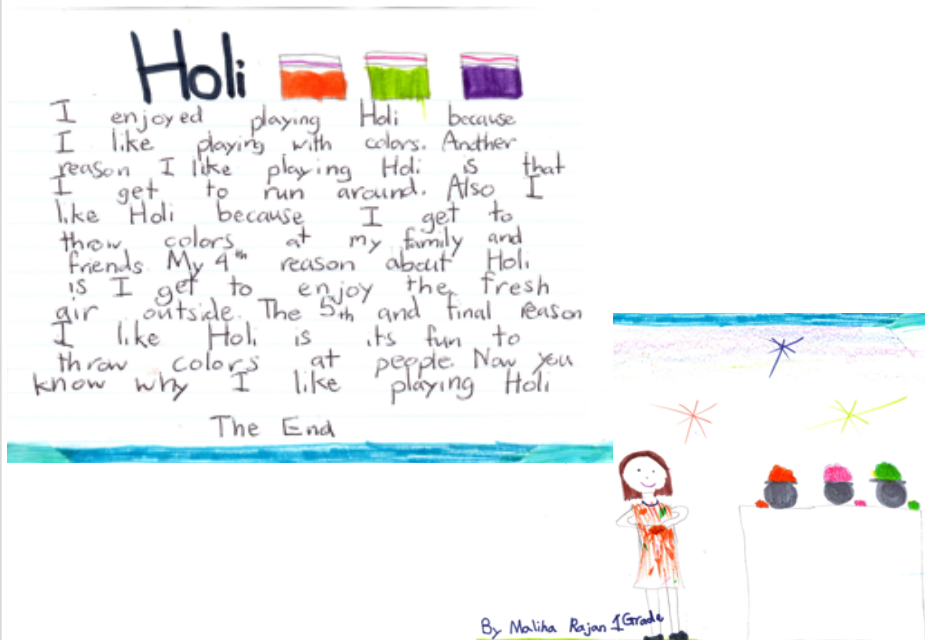 Holi
I enjoyed playing Holi because
I like playing with colors. Another
reason I like playing Holi is that
I get to run around. Also I
like Holi because I get to
throw colors at my family and
friends. My 4th reason about Holi
is I get to enjoy the fresh
air outside. The 5th and final reason
I like Holi is its fun to
throw colors at people. Now you
know why I like playing Holi
The End
By Malika Rajan 1 Grade